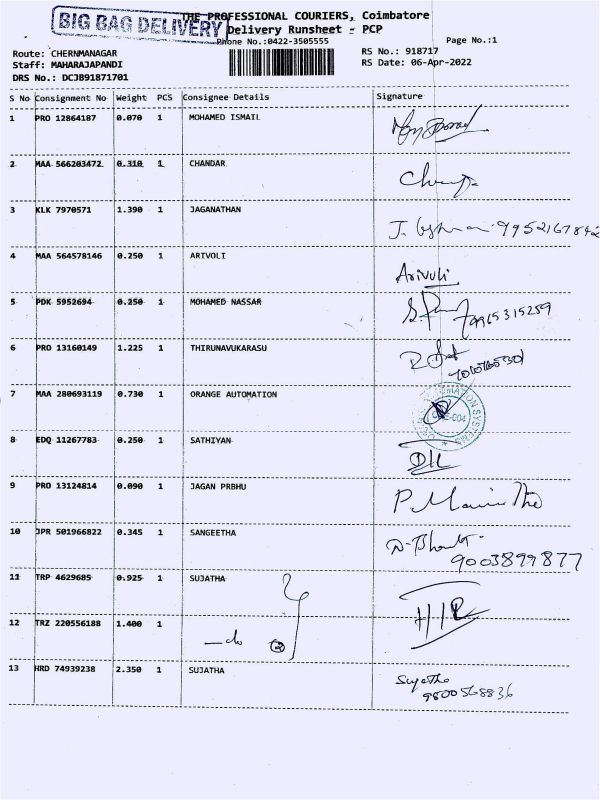 BIG BAG DELIVERY
THE PROFESSIONAL COURIERS, Coimbatore
Delivery Runsheet - PCP
Phone No.:0422-3505555 Page No.:1
Route: CHERNMANAGAR RS No.: 918717
Staff: MAHARAJAPANDI RS Date: 06-Apr-2022
DRS No.: DCJB91871701
S No Consignment No Weight PCS Consignee Details Signature
1 PRO 12864187 0.070 1 MOHAMED ISMAIL
2 MAA 566203472 0.310 1 CHANDAR
3 KLK 7970571 1.390 1 JAGANATHAN
4 MAA 564578146 0.250 1 ARIVOLI Arivuli
5 PDK 5952694 0.250 1 MOHAMED NASSAR 9965315259
6 PRO 13160149 1.225 1 THIRUNAVUKARASU
7 MAA 280693119 0.730 1 ORANGE AUTOMATION
8 EDQ 11267783 0.250 1 SATHIYAN
9 PRO 13124814 0.090 1 JAGAN PRBHU
10 JPR 501966822 0.345 1 SANGEETHA 9003899877
11 TRP 4629685 0.925 1 SUJATHA
12 TRZ 220556188 1.400 1 -do
13 HRD 74939238 2.350 1 SUJATHA Sujatha
9800568836